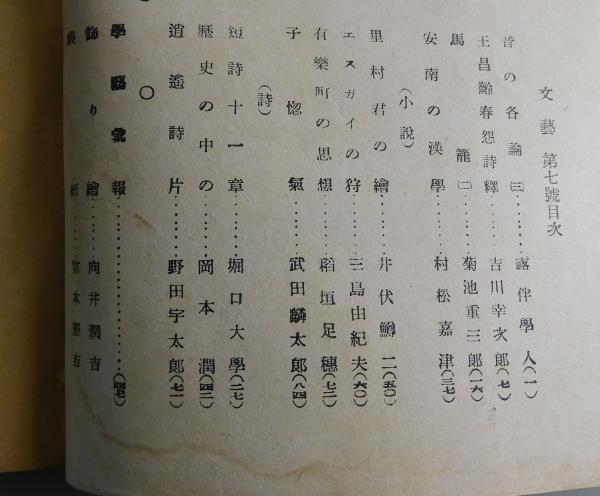 文藝 第七號目次
音の各論(三)‥‥‥露伴學人(一)
王昌齡春怨詩釋‥‥‥吉川幸次郎(七)
馬籠(二)‥‥‥菊池重三郎(一六)
安南の漢學‥‥‥村松嘉津(三七)
(小說)
里村君の繪‥‥‥井伏鱒二(五〇)
エスガイの狩‥‥‥三島由紀夫(六〇)
有樂町の思想‥‥‥稻垣足穗(七二)
子惚氣‥‥‥武田麟太郎(八四)
(詩)
短詩十一章‥‥‥堀口大學(二七)
歷史の中の‥‥‥岡本潤(四二)
逍遙詩片‥‥‥野田宇太郎(七一)
〇
學藝彙報‥‥‥‥‥‥(四七)
飾り繪‥‥‥向井潤吉
表紙‥‥‥富本憲吉